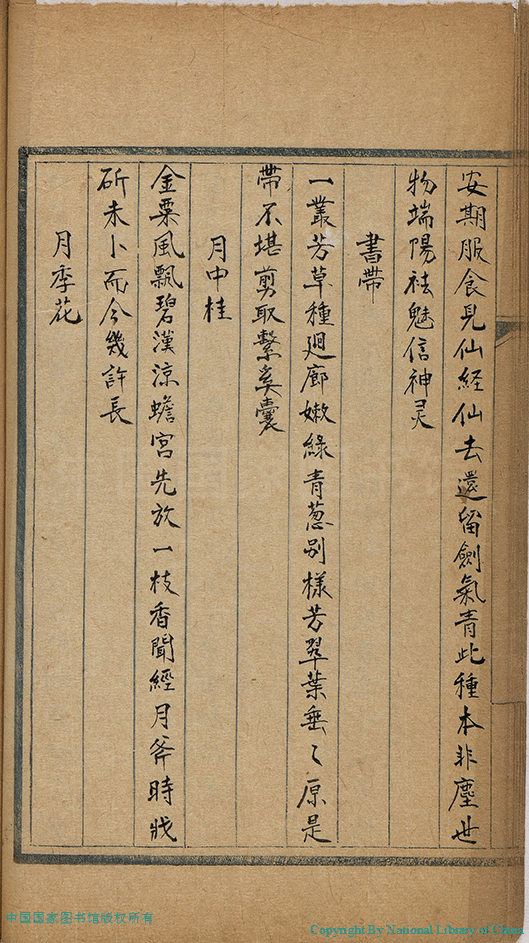 安期服食見仙経仙去還留劍氣青此種本非塵世
物端陽祛魅信神灵
書帶
一叢芳草種廻廊嫩綠青葱别樣芳翠葉垂〻原是
帶不堪剪取繫奚囊
月中桂
金粟風飄碧漢涼蟾宮先放一枝香聞經月斧時戕
斫未卜而今幾許長
月季花
中国国家图书馆版权所有
Copyright By National Library of China